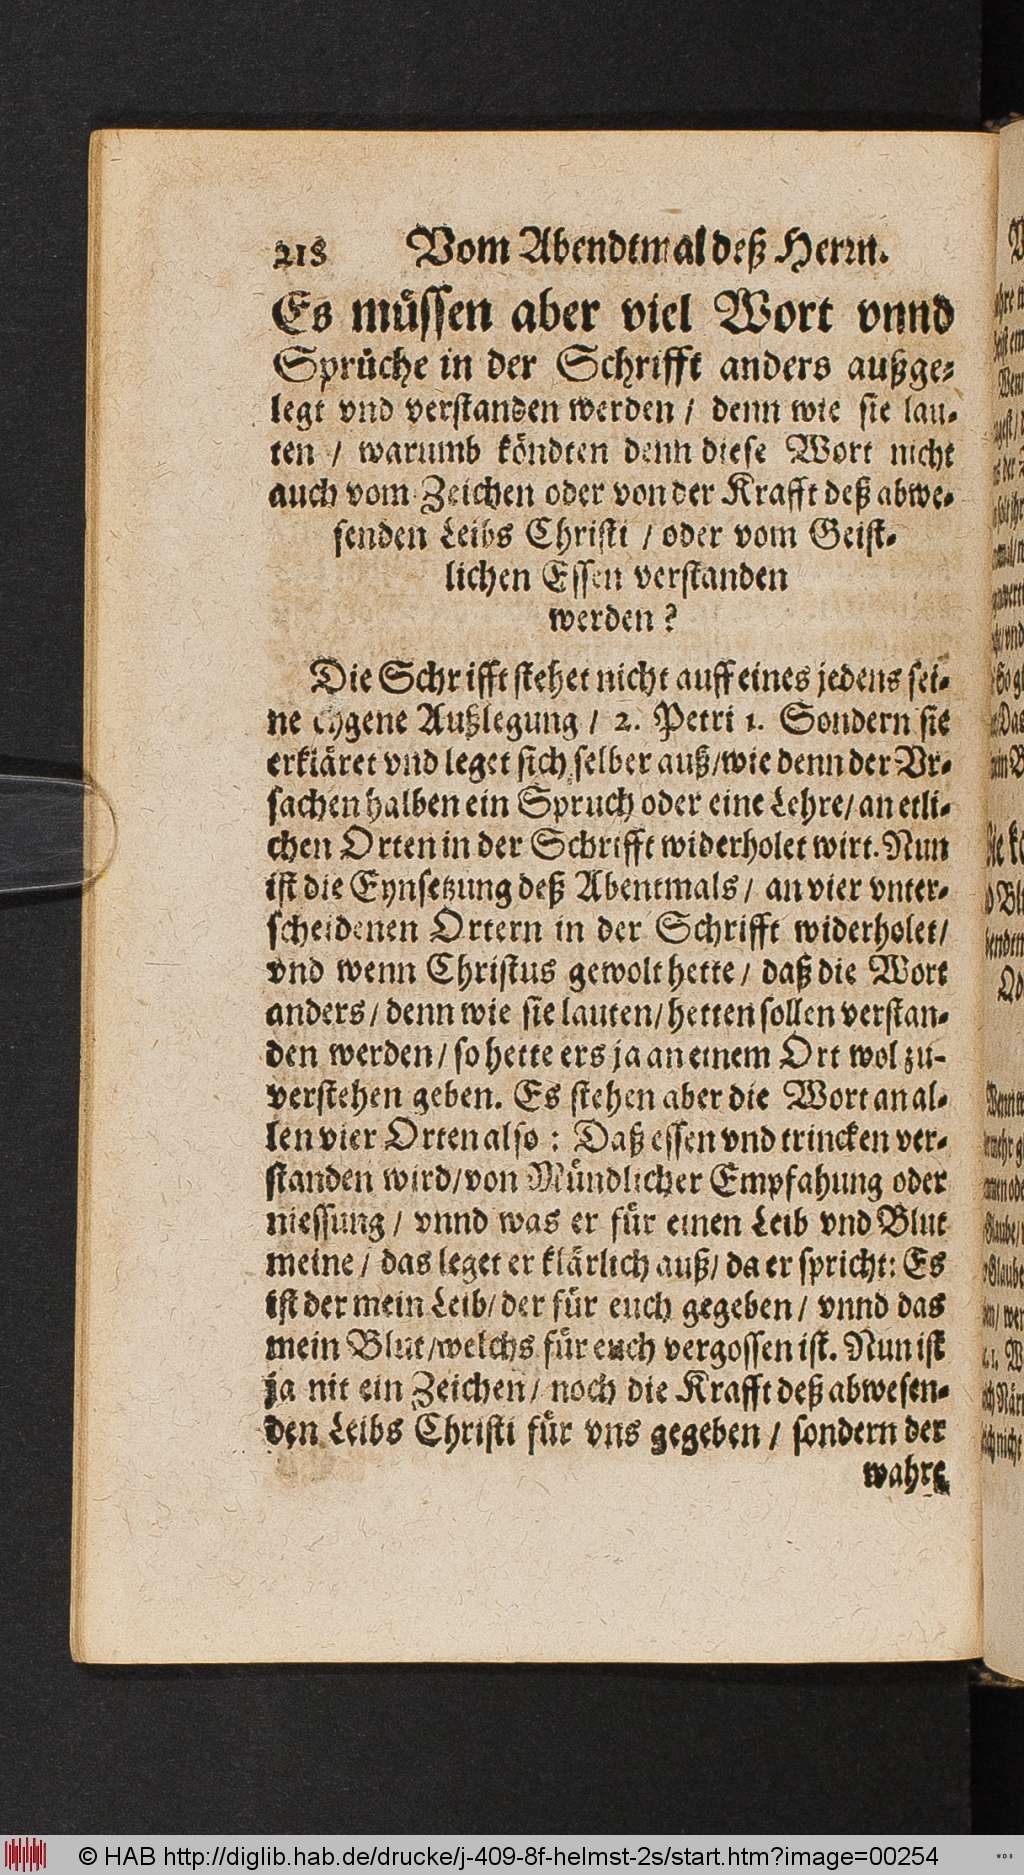 218 Vom Abendtmal deß Herrn.
Es müssen aber viel Wort vnnd
Sprüche in der Schrifft anders außge-
legt vnd verstanden werden / denn wie sie lau-
ten / warumb köndten denn diese Wort nicht
auch vom Zeichen oder von der Krafft deß abwe-
senden Leibs Christi / oder vom Geist-
lichen Essen verstanden
werden?
Die Schrifft stehet nicht auff eines jedens sei-
ne eygene Außlegung / 2. Petri 1. Sondern sie
erkläret vnd leget sich selber auß / wie denn der Vr-
sachen halben ein Spruch oder eine Lehre / an etli-
chen Orten in der Schrifft widerholet wirt. Nun
ist die Eynsetzung deß Abentmals / an vier vnter-
scheidenen Ortern in der Schrifft widerholet /
vnd wenn Christus gewolt hette / daß die Wort
anders / denn wie sie lauten / hetten sollen verstan-
den werden / so hette ers ja an einem Ort wol zu-
verstehen geben. Es stehen aber die Wort an al-
len vier Orten also : Daß essen vnd trincken ver-
standen wird / von Mündlicher Empfahung oder
niessung / vnnd was er für einen Leib vnd Blut
meine / das leget er klärlich auß / da er spricht: Es
ist der mein Leib / der für euch gegeben / vnnd das
mein Blut / welchs für euch vergossen ist. Nun ist
ja nit ein Zeichen / noch die Krafft deß abwesen-
den Leibs Christi für vns gegeben / sondern der
wahre
© HAB http://diglib.hab.de/drucke/j-409-8f-helmst-2s/start.htm?image=00254